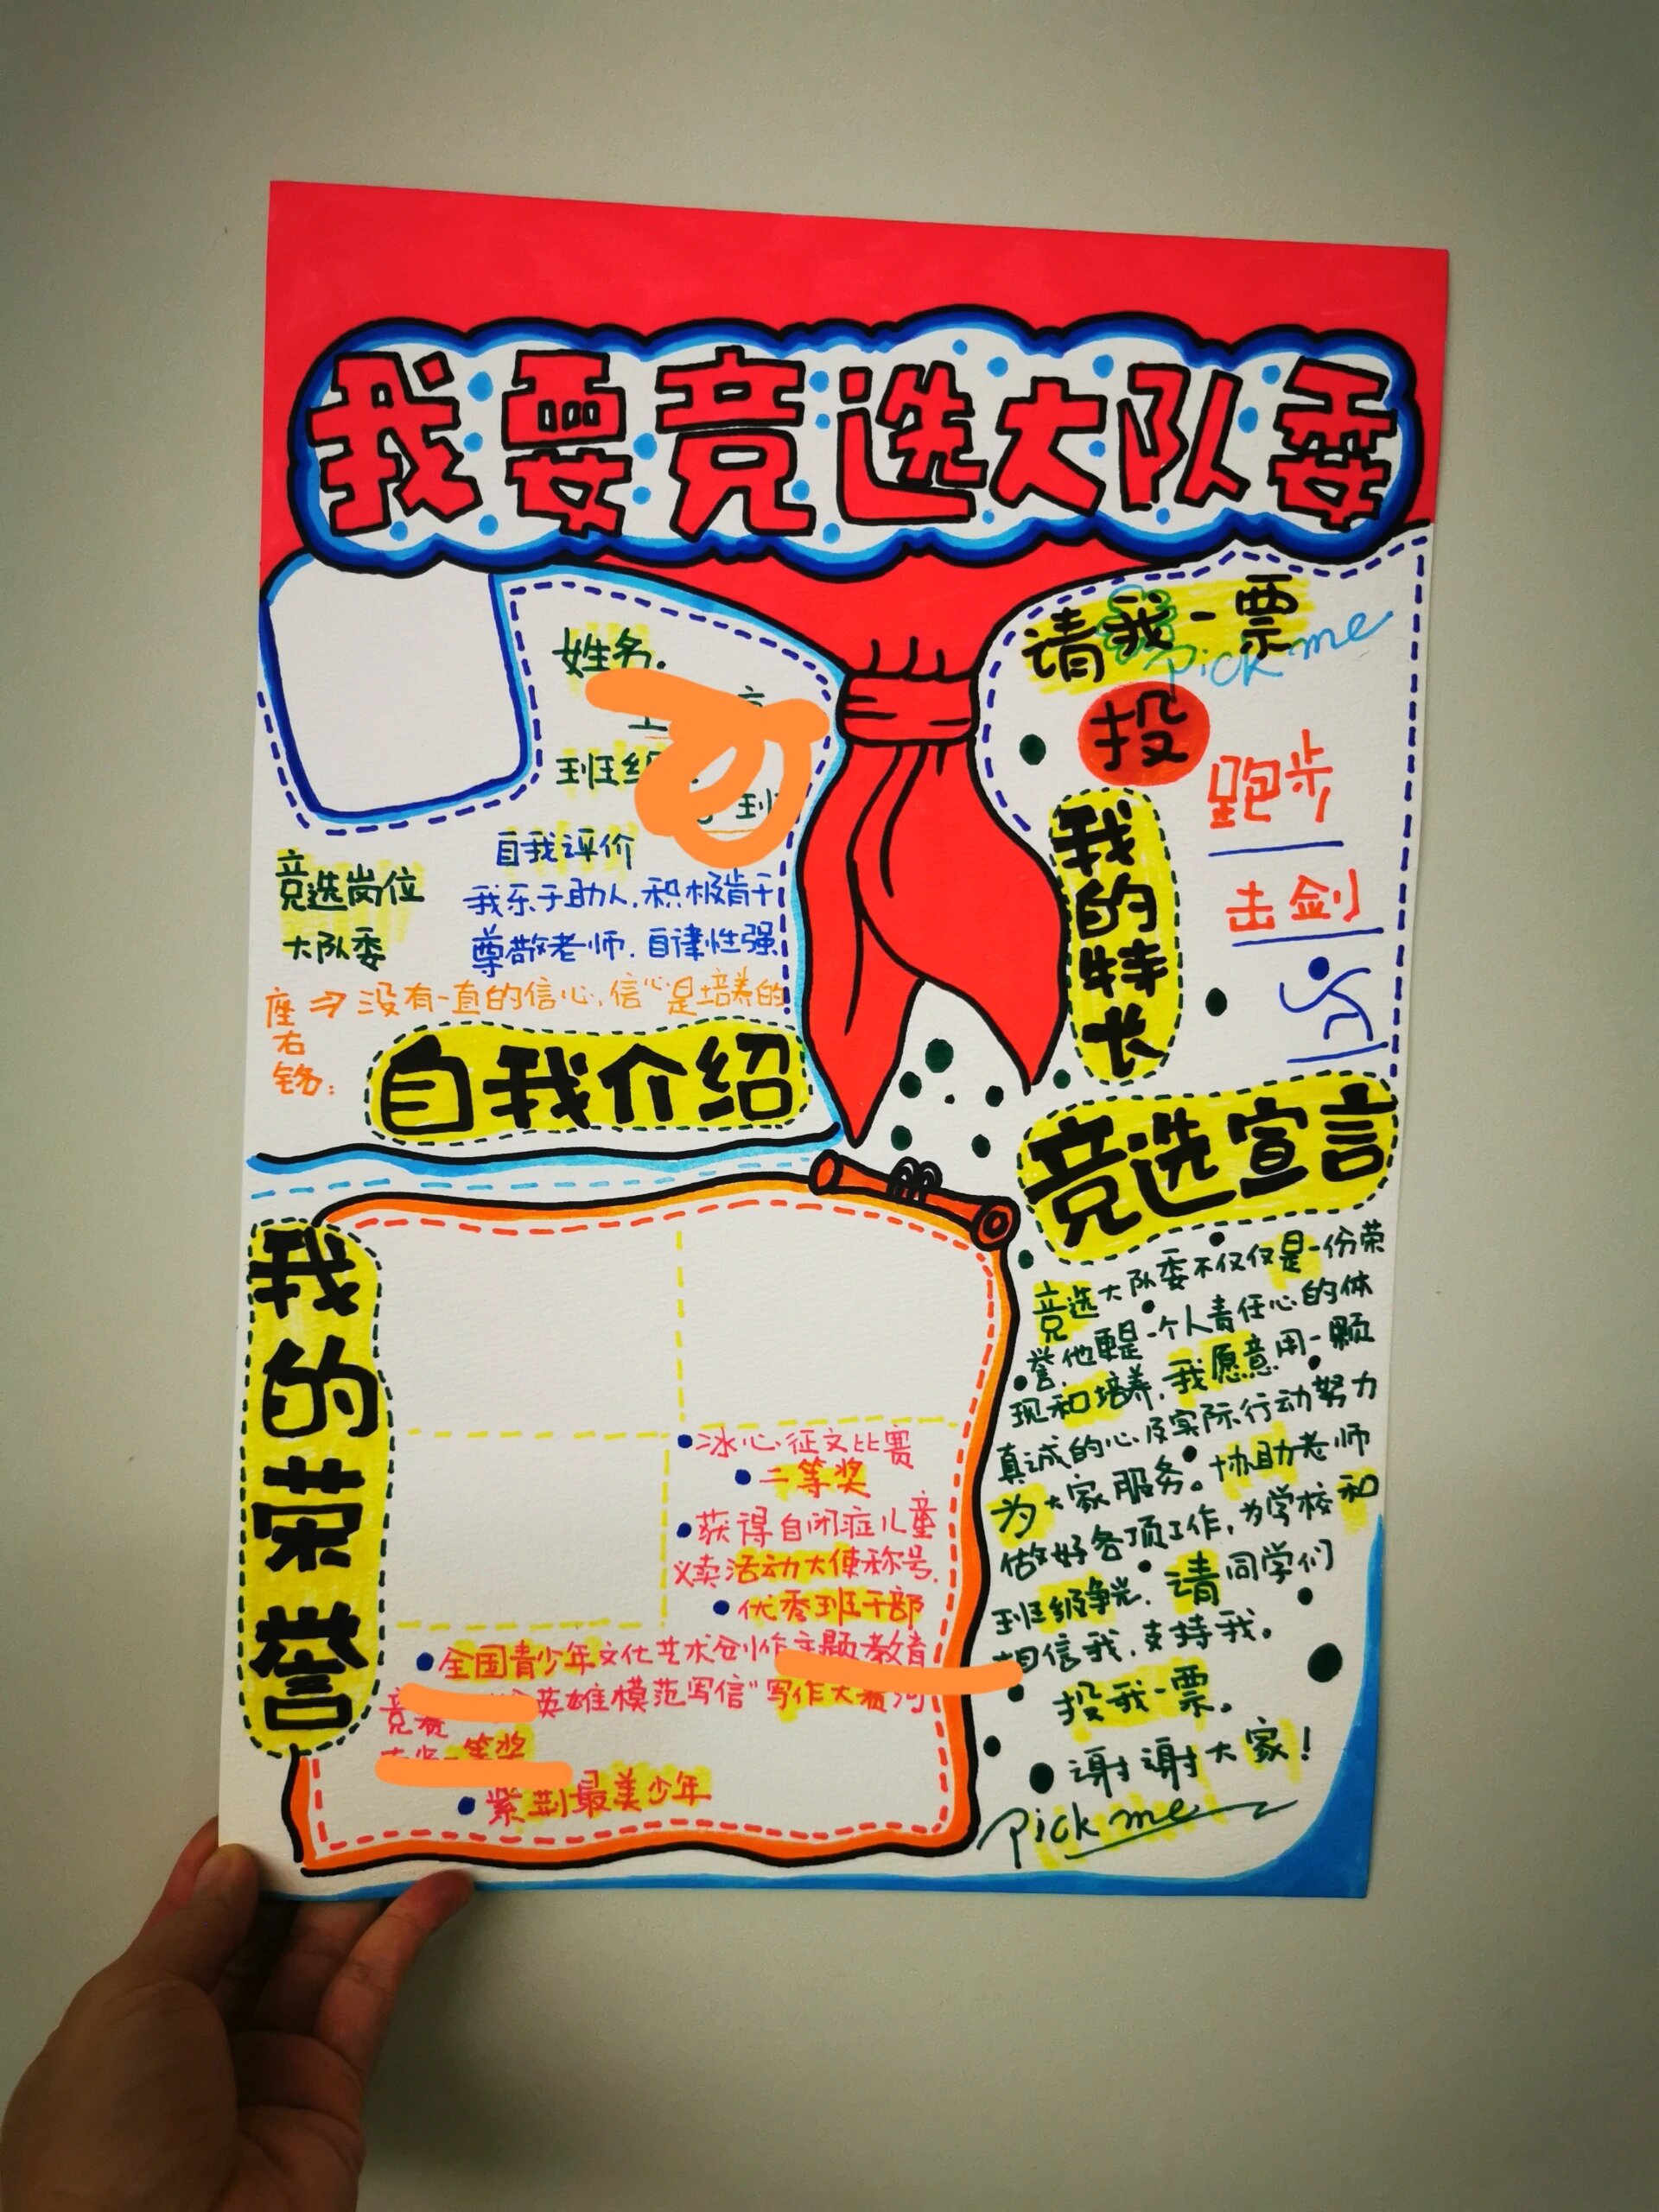 我要竞选大队委
姓名.
班级
班
竞选岗位
大队委
自我评价
我乐于助人,积极肯干
尊敬老师.自律性强
座右铭:
没有一直的信心,信心是培养的
自我介绍
请我一票
pick me
投
我的特长
跑步
击剑
竞选宣言
竞选大队委不仅仅是一份荣
誉,他更是一个人责任心的体
现和培养,我愿意用一颗
真诚的心及实际行动努力
为大家服务。协助老师
做好各项工作,为学校和
班级争光.请同学们
相信我.支持我。
投我一票。
谢谢大家!
Pick me
我的荣誉
冰心征文比赛
二等奖
获得自闭症儿童
义卖活动大使称号.
优秀班干部
全国青少年文化艺术创作主题教育
竞赛 英雄模范写信"写作大赛
一等奖
紫荆最美少年